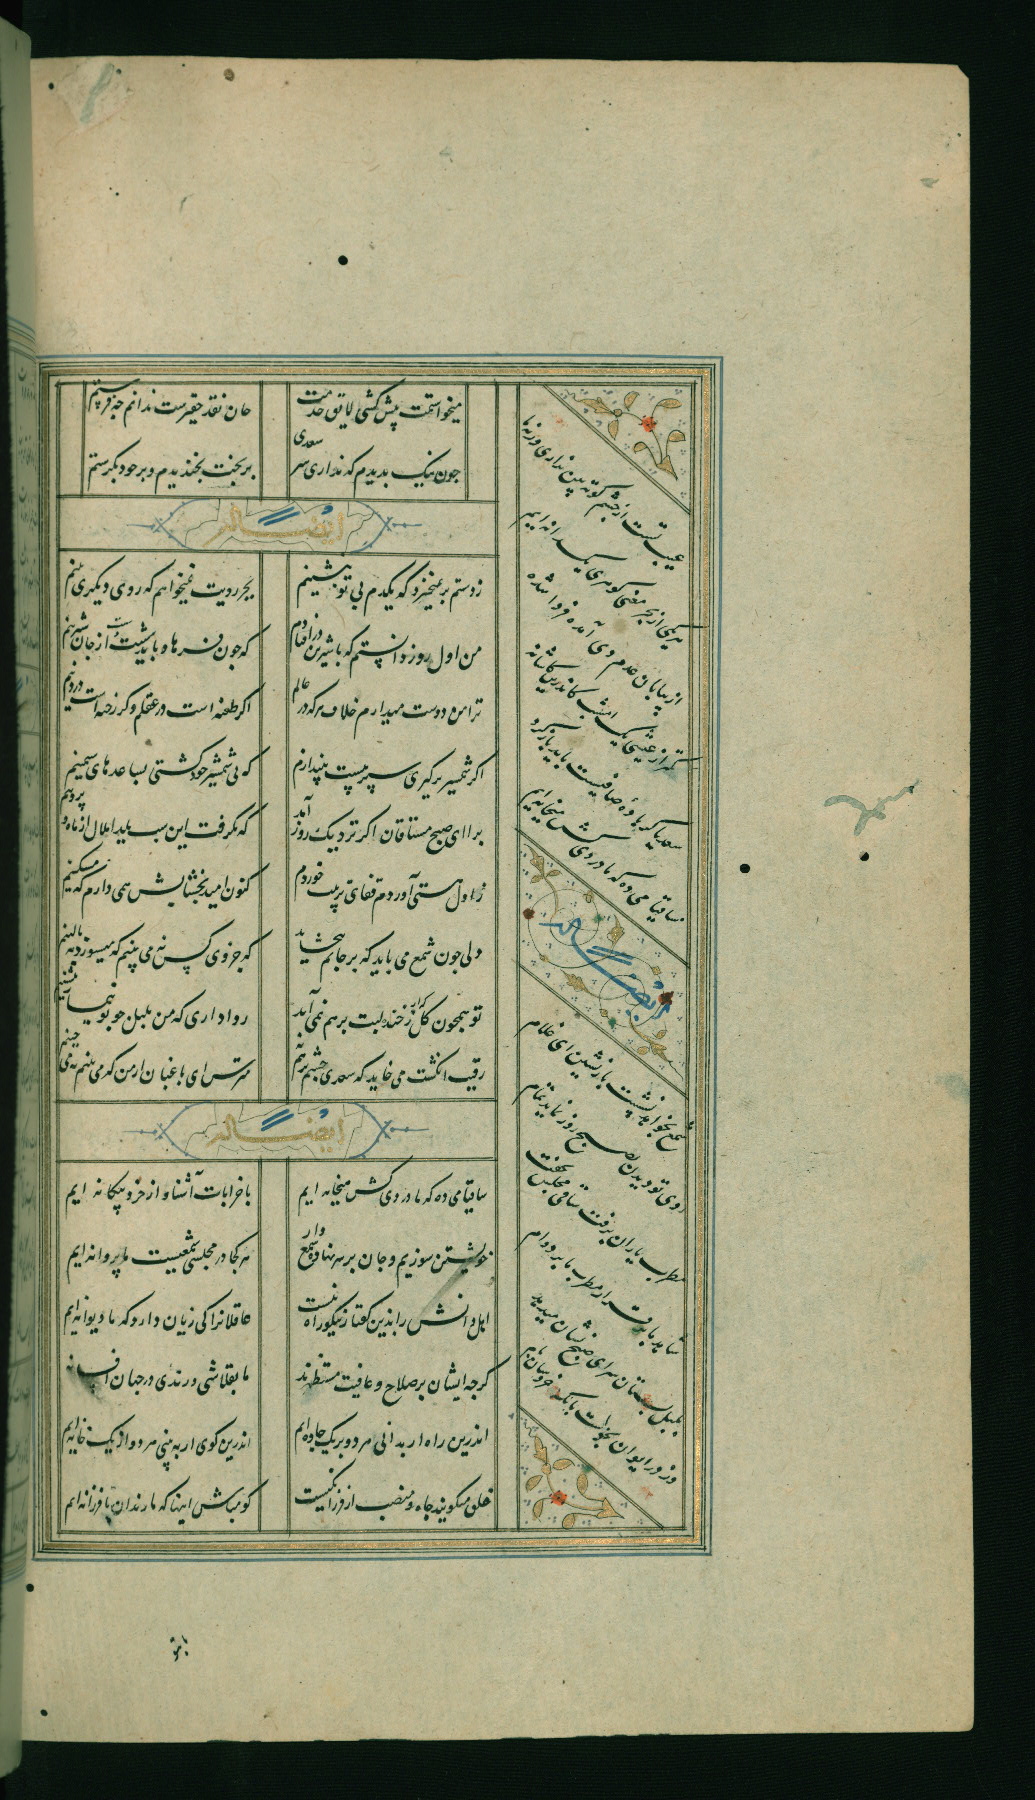 میخواستمت پیش‌کشی لایق خدمت جان نقد حقیرست ندانم چه فرستم
چون نیک بدیدم که نداری سر سعدی بر بخت بخندیدم و بر خود بگرستم
ایضاً له
ز دستم بر نمیخیزد که یکدم بی تو بنشینم بجز رویت نمیخواهم که روی دیگری بینم
من اول روز دانستم که با شیرین در افتادم که چون فرهاد باید شست دست از جان شیرینم
ترا من دوست میدارم خلاف هر که در عالم اگر طعنه است در عقلم و گر رخنه است در دینم
اگر شمشیر برگیری سپر پیشت بیندازم که بی شمشیر خود کشتی بساعدهای سیمینم
برآ ای صبح مشتاقان اگر نزدیک روز آمد که بگرفت این شب یلدا ملال از ماه و پروینم
ز اول هستی آوردم قفای نیستی خوردم کنون امید بخشایش همی دارم که مسکینم
دلی چون شمع می باید که بر جانم ببخشاید که جز وی کس نمی بینم که میسوزد ببالینم
تو همچون گل ز خندیدن لبت برهم نمی آید روا داری که من بلبل چو بوتیمار بنشینم
رقیب انگشت می خاید که سعدی چشم برهم نه مترس ای باغبان از من که می بینم نمی چینم
ایضاً له
ساقیا می ده که ما دردی کش میخانه ایم با خرابات آشنا و از خرد بیگانه ایم
خویشتن سوزیم و جان بر سر نهاده شمع وار هر کجا در مجلسی شمعیست ما پروانه ایم
اهل دانش را بدین گفتار نیکو راه نیست عاقلانرا کی زیان دارد که ما دیوانه ایم
گرچه ایشان بر صلاح و عافیت مستظهرند ما بقلاشی و رندی در جهان افسانه ایم
اندرین راه ار بدانی مر دو بر یک جاده ایم اندرین کوی ار ببینی مر دو از یک خانه ایم
خلق میگویند جاه و منصب از فرزانگیست گو مباش اینها که ما رندان نافرزانه ایم
عیب تست ار چشم کوته بین نداری ورنه ما
هر یکی از بحر معنی گوهری یکدانه ایم
از بیابان عدم دی آمده فردا شده
کمتر از عیشی یک امشب کاندرین کاشانه
سعدیا گر باده صافیت باید باز گو
ساقیا می ده که ما دردی کش میخانه ایم
ایضاً له
شمع بخواهد نشست باز نشین ای غلام
روی تو دیدن بصبح روز نماید تمام
مطرب یاران برفت ساقی مجلس بخفت
شاهد ما برقرار مطرب ما بر دوام
بلبل بستان سرای صبح نشان میدهد
وز در ایوان بخاست بانگ خروسان بام